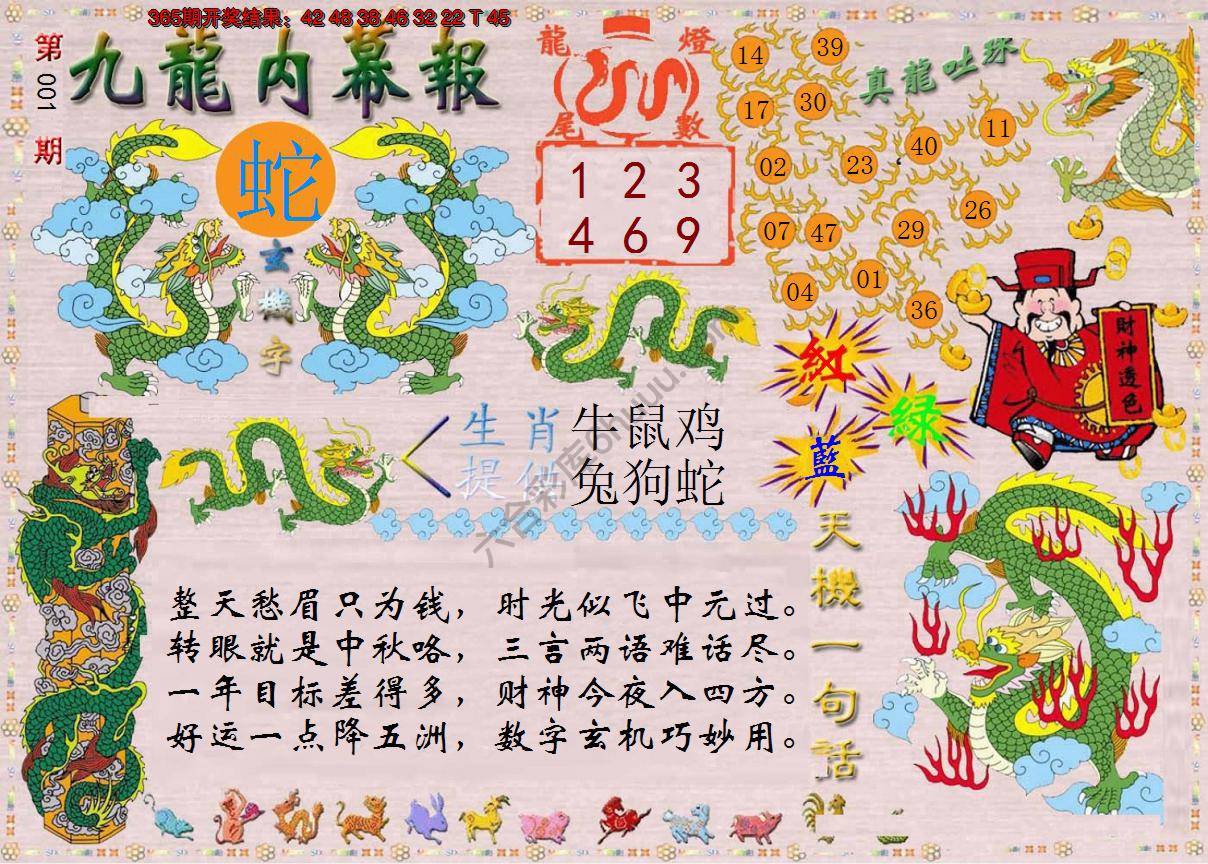 365期开奖结果：42 48 38 46 32 22 T 45
第001期
九龍内幕報
蛇
玄機字
龍燈
尾數
1 2 3
4 6 9
真龍吐珠
14 39
17 30
02 23 40 11
07 47 29 26
04 01 36
財神透色
紅
綠
藍
生肖 牛鼠鸡
提供 兔狗蛇
六合彩库
天機一句話
整天愁眉只为钱，时光似飞中元过。
转眼就是中秋咯，三言两语难话尽。
一年目标差得多，财神今夜入四方。
好运一点降五洲，数字玄机巧妙用。